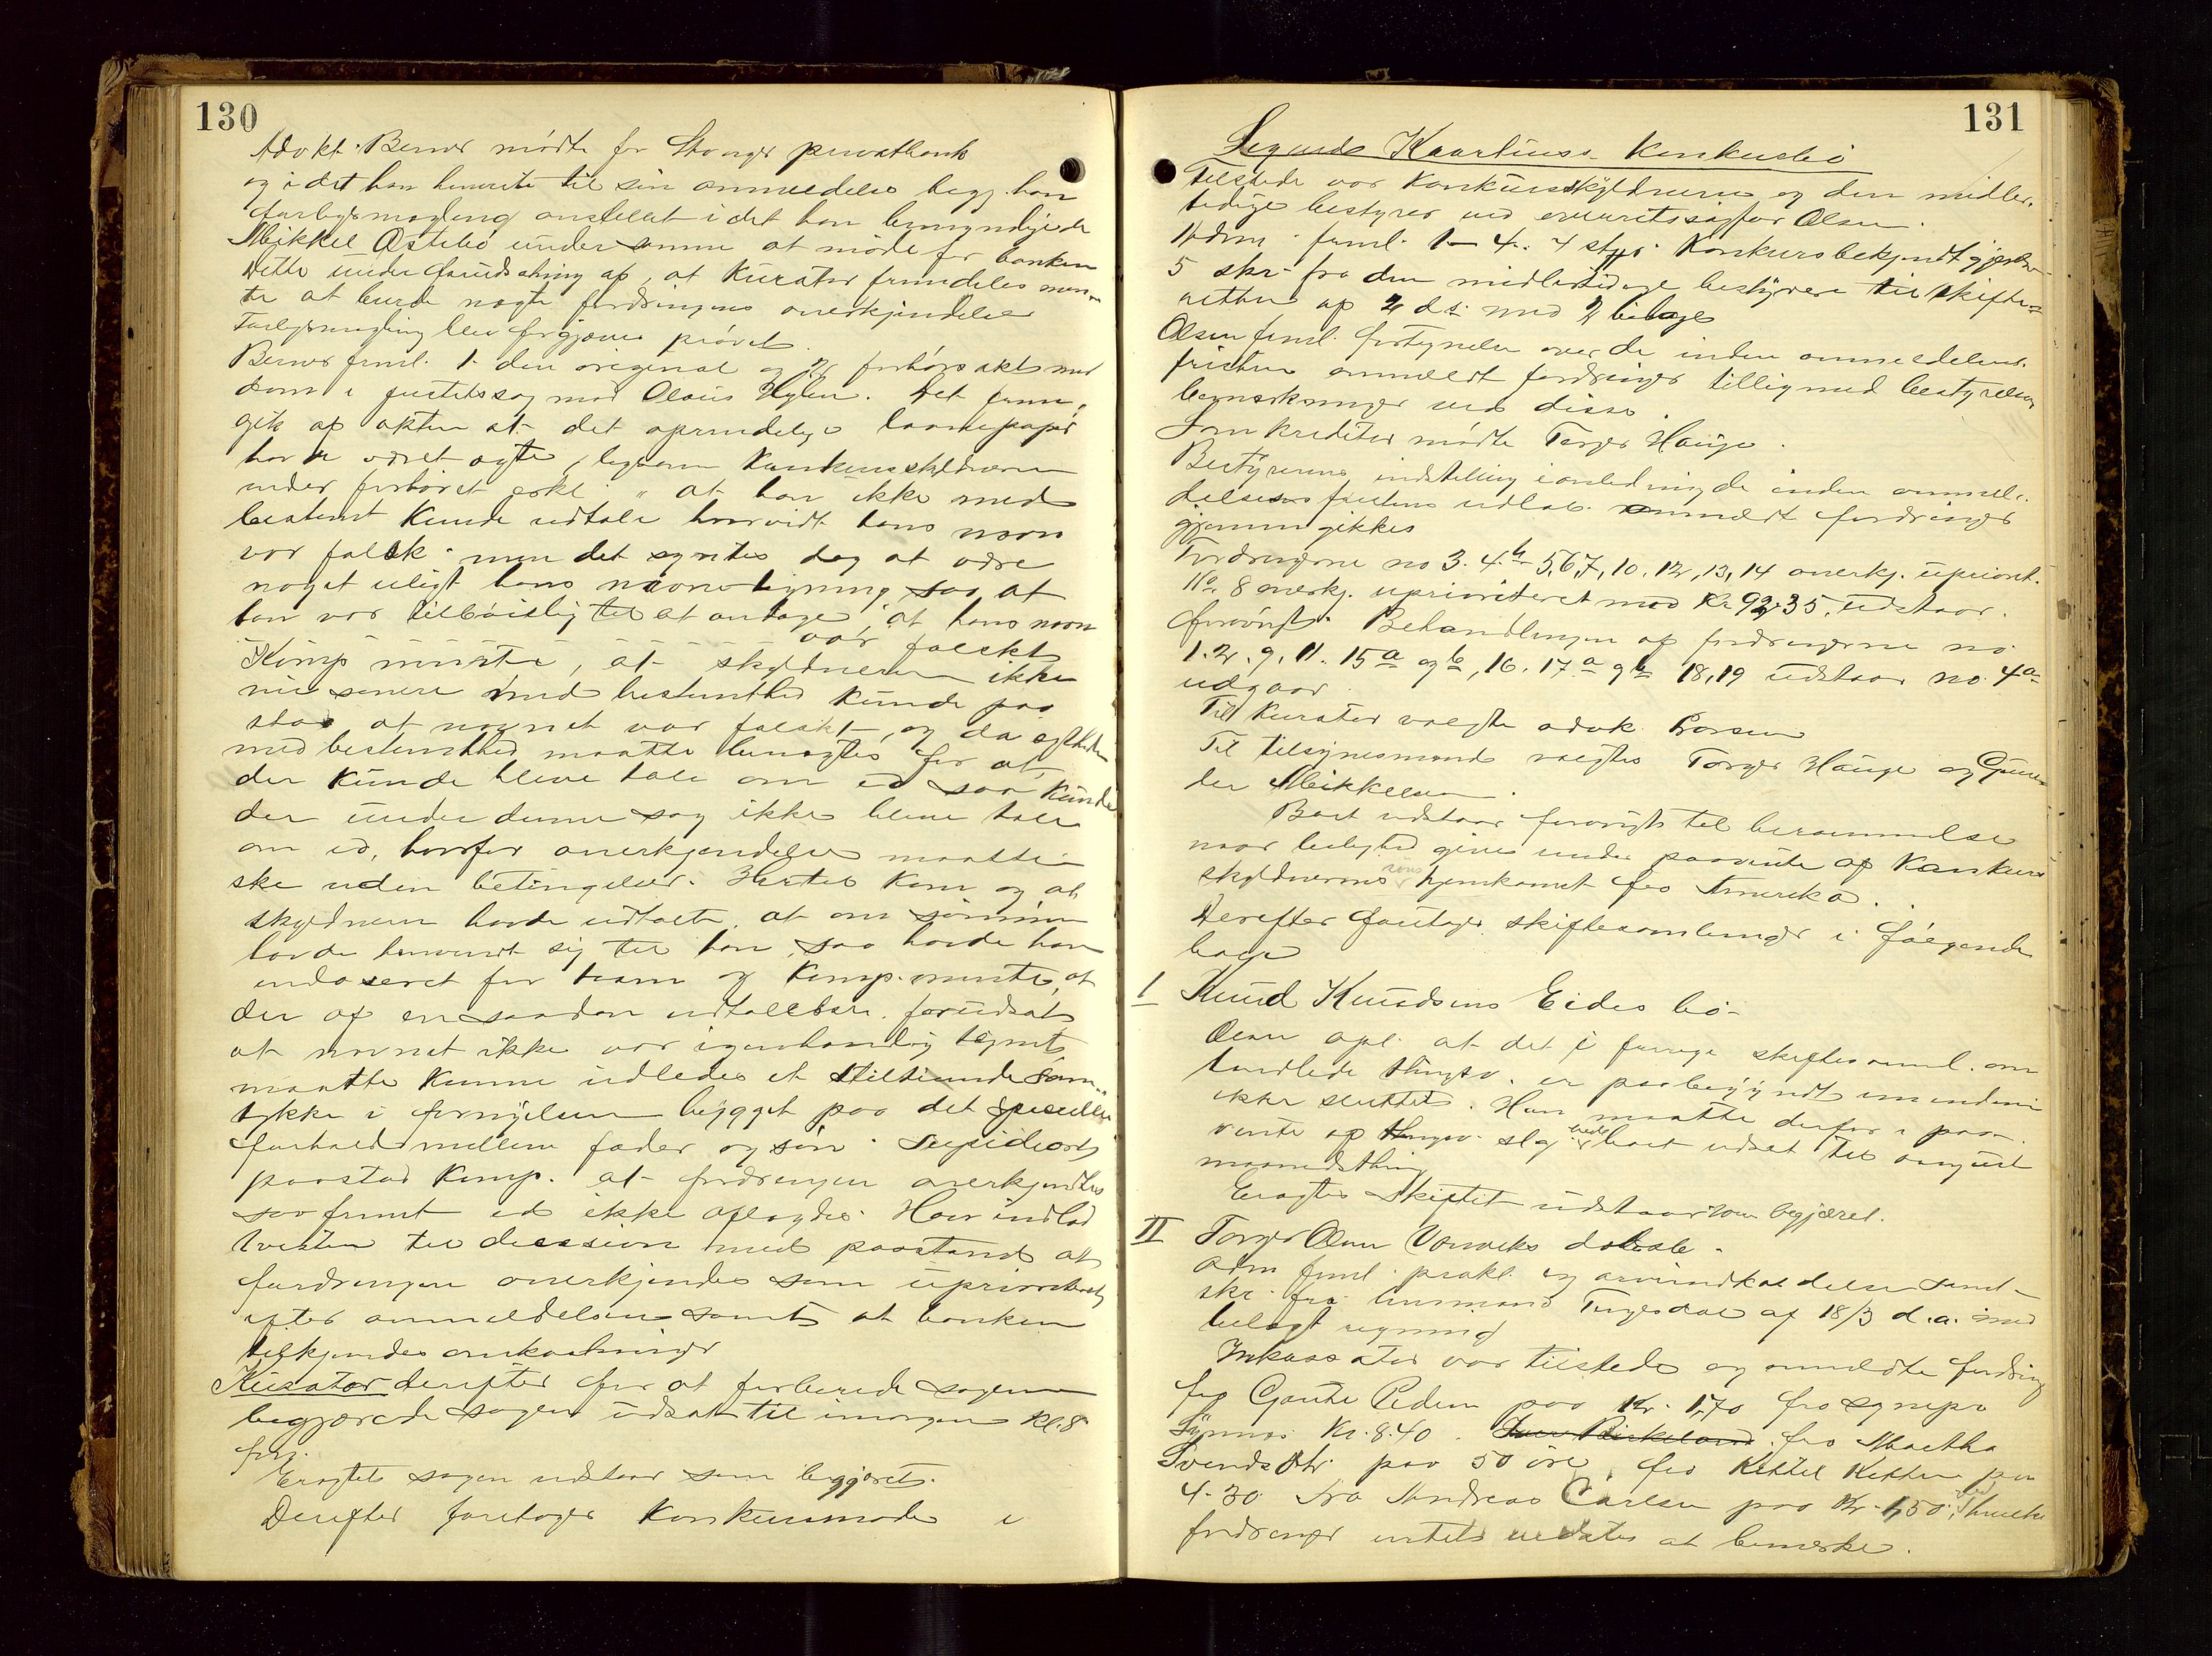 130
Advkt. Berner mødte for Stvanger privatbank
og i det han henviste til sin anmeldelse begj. han
forligsmægling anstillet i det han bemyndigede
Mikkel Østebø under samme at møde for banken
Dette under forudsætning af, at Kurator fremdeles men-
te at burde nægte fordringens anerkjendelse
Forligsmægling blev forgjæves prøvet.
Berner freml. 1. den original og 2 forhørsakt med
dom i justitssag mod Olaus Hylen. Det frem-
gik af akten at det oprindelige laanepapir
havde været ægte, ligesom Konkursskyldneren
under forhøret erkl. "at han ikke med
bestemt Kunde udtale hvorvidt hans navn
var falsk men det syntes dog at være
noget uligt hans navnetegning, saa at
han var tilbøielig til at antage, at hans navn
var falskt
Komp mente, at skyldneren ikke
nu senere med bestemthed Kunde paa
staa at navnet var falskt, og da ægtheden
med bestemthed maatte benægtes for at
der Kunde blive tale om ed saa Kunde
der under denne sag ikke blive tale
om ed, hvorfor anerkjendelse maatte
ske uden betingelser. Hertil Kom og at
skyldneren havde udtalt, at om sønnen
havde henvendt sig til ham, saa havde han
endoseret for ham og Komp. mente, at
der af en saadan udtalelse forudsat
at navnet ikke var egenhændig tegnet,
maatte Kunne udledes et stiltiende sam-
tykke i fornyelsen bygget paa det specielle
forhold mellem fader og søn. Supsidiært
paastod Komp. at fordringen anerkjendtes
saafremt ed ikke aflagdes. Han indlod
tvisten til decision med paastand at
fordringen anerkjendes som uprioriteret
efter anmeldelsen samt at banken
tilkjendes omkostninger
Kurator derefter for at forberede sagen
begjærede sagen udsat til imorgen Kl. 8
form.
Eragtet sagen udstaar som begjæret.
Derefter foretages Konkursmøde i
131
Sigurds Kaarliuss. Konkursbo
Tilstede var Konkursskyldneren og den midler-
tidige bestyrer ved overretssagfør Olsen.
Adm. freml. 1 - 4. 4 stkr. Konkursbekjendtgjørelse
5 skr. fra den midlertidige bestyrer til skifte-
retten af 2 ds. med 2 bilage
Olsen freml. fortegnelse over de inden anmeldelses-
fristen anmeldt fordringer tilligemed bestyrelsens
bemærkninger ved disse.
Som kreditor mødte Torger Hauge.
Bestyrerens indstilling i anledning de inden anmel-
delsesfristens udløb anmeldt fordringer
gjennemgikkes
Fordringerne no 3. 4.b 5, 6, 7, 10, 12, 13, 14 anerkj. uprioret.
No. 8 anerkj. uprioriteret med Kr 92,35. udstaar
forøvrigt. Behandlingen af fordringerne no
1. 2. 9. 11. 15a og b, 16. 17 a og b 18, 19 udstaar no. 4a
udgaar.
Til Kurator valgte advok. Larsen
Til tilsynsmænd valgtes Torger Hauge og Gun-
der Mikkelsen.
Boet udstaar forøvrigt til berammelse
naar leilighed gives under paavente af Konkurs
skyldnerens søns hjemkomst fra Amerika.
Derefter foretages skiftesamlinger i følgende
boer
I Knud Knudsens Eides bo-
Olsen opl. at det i forrige skiftesaml. om
handlede thingsv. er paabegyndt men endnu
ikke sluttet. Han maatte derfor i paa-
vente af thingsv. slg bede boet udsat til august
maanedsthing
Eragtes Skiftet udstaar som begjæret.
II Torger Olsen Vorviks dødsbo.
Adm freml. prokl. og arveindkaldelse samt
skr. fra lensmand Tengesdal af 18/3 d.a. med
bilagt regning
Inkassator var tilstede og anmeldte fordring
fra Gaute Pedersen paa Kr. 1,70 fra
Kr. 8.40. Iver Birkeland. fra Martha
Svendsdtr. paa 50 øre, fra Kittel Kittelsen paa
4.30 fra Andreas Carlsen paa Kr. 1,50. Ved
fordringer intet at bemerke.